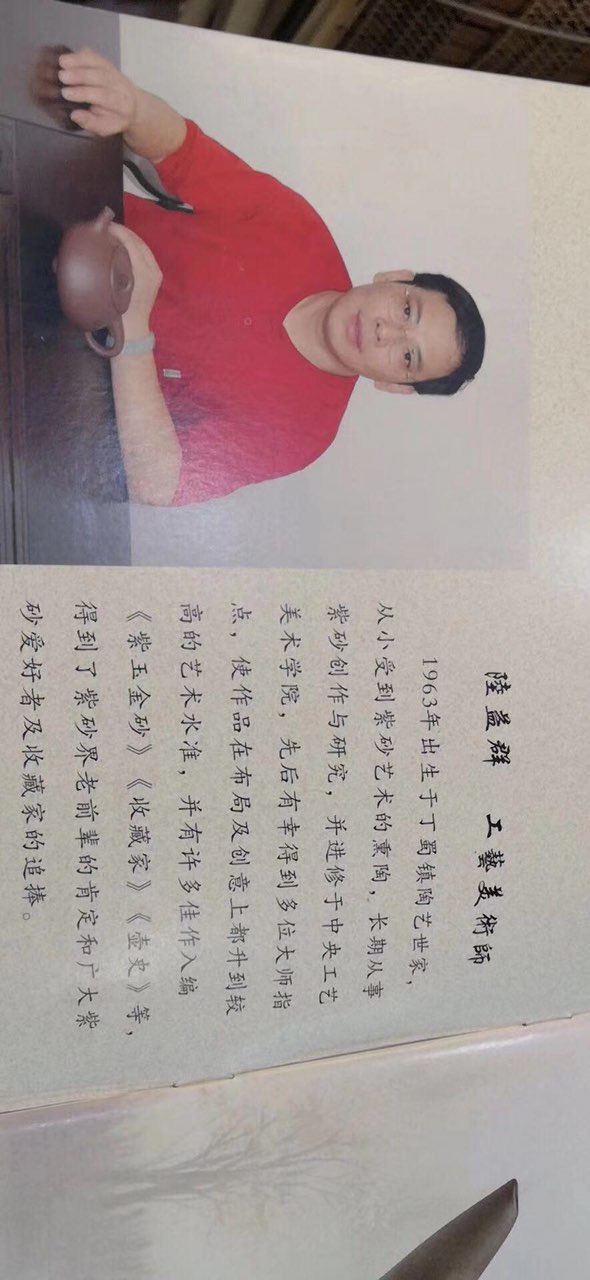 陸益群 工藝美術師
1963年出生于丁蜀镇陶艺世家，
从小受到紫砂艺术的熏陶，长期从事
紫砂创作与研究，并进修于中央工艺
美术学院，先后有幸得到多位大师指
点，使作品在布局及创意上都升到较
高的艺术水准，并有许多佳作入编
《紫玉金砂》《收藏家》《壶史》等，
得到了紫砂界老前辈的肯定和广大紫
砂爱好者及收藏家的追捧。